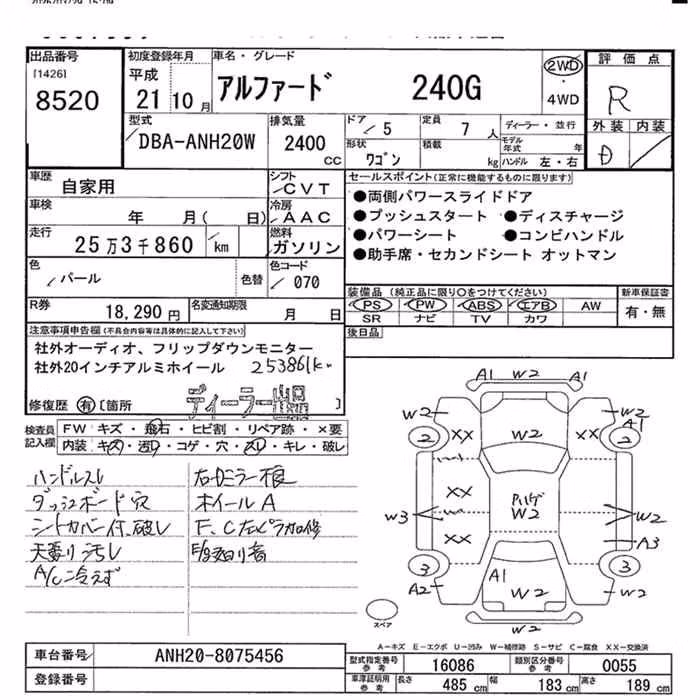 出品番号
[1426]
8520
初度登録年月
平成
21年10月
車名・グレード
アルファード 240G
2WD
・
4WD
評価点
R
外装 内装
D
型式
DBA-ANH20W
排気量
2400
CC
ドア
5
定員
7人
ディーラー・並行
形状
ワゴン
積載
kg
モデル年式 年
ハンドル 左・右
車歴
自家用
シフト
CVT
車検
年 月( 日)
冷房
AAC
走行
25万3千860 km
燃料
ガソリン
色
パール
色替
色コード
070
R券
18,290円
名変通知期限
月 日
セールスポイント(正常に機能するものに限ります)
●両側パワースライドドア
●プッシュスタート ●ディスチャージ
●パワーシート ●コンビハンドル
●助手席・セカンドシート オットマン
装備品 (純正品に限り○をつけてください)
PS PW ABS エアB AW
SR ナビ TV カワ
新車保証書
有・無
後日品
注意事項申告欄(不具合内容等は具体的に記入して下さい)
社外オーディオ、フリップダウンモニター
社外20インチアルミホイール 253861km
修復歴 有 [箇所 ]
ディーラー出品
検査員記入欄
FW キズ・飛石・ヒビ割・リペア跡・×要
内装 キズ・汚レ・コゲ・穴・スレ・キレ・破レ
ハンドルスレ
ダッシュボード穴
シートカバー付、破レ
天張り汚レ
A/C冷えず
右ドアミラー根
ホイールA
A1 W2 A1
W2 W2
A1
2 XX W2 XX 2
XX
W2
W3 W2
XX
A3
3 A1 3
A2 W2 W2
W2
スペア
A－キズ E－エクボ U－凹み W－補修跡 S－サビ C－腐食 XX－交換済
車台番号
ANH20-8075456
登録番号
型式指定番号
参考
16086
類別区分番号
参考
0055
車庫証明用
参考
長さ 485cm 幅 183cm 高さ 189cm